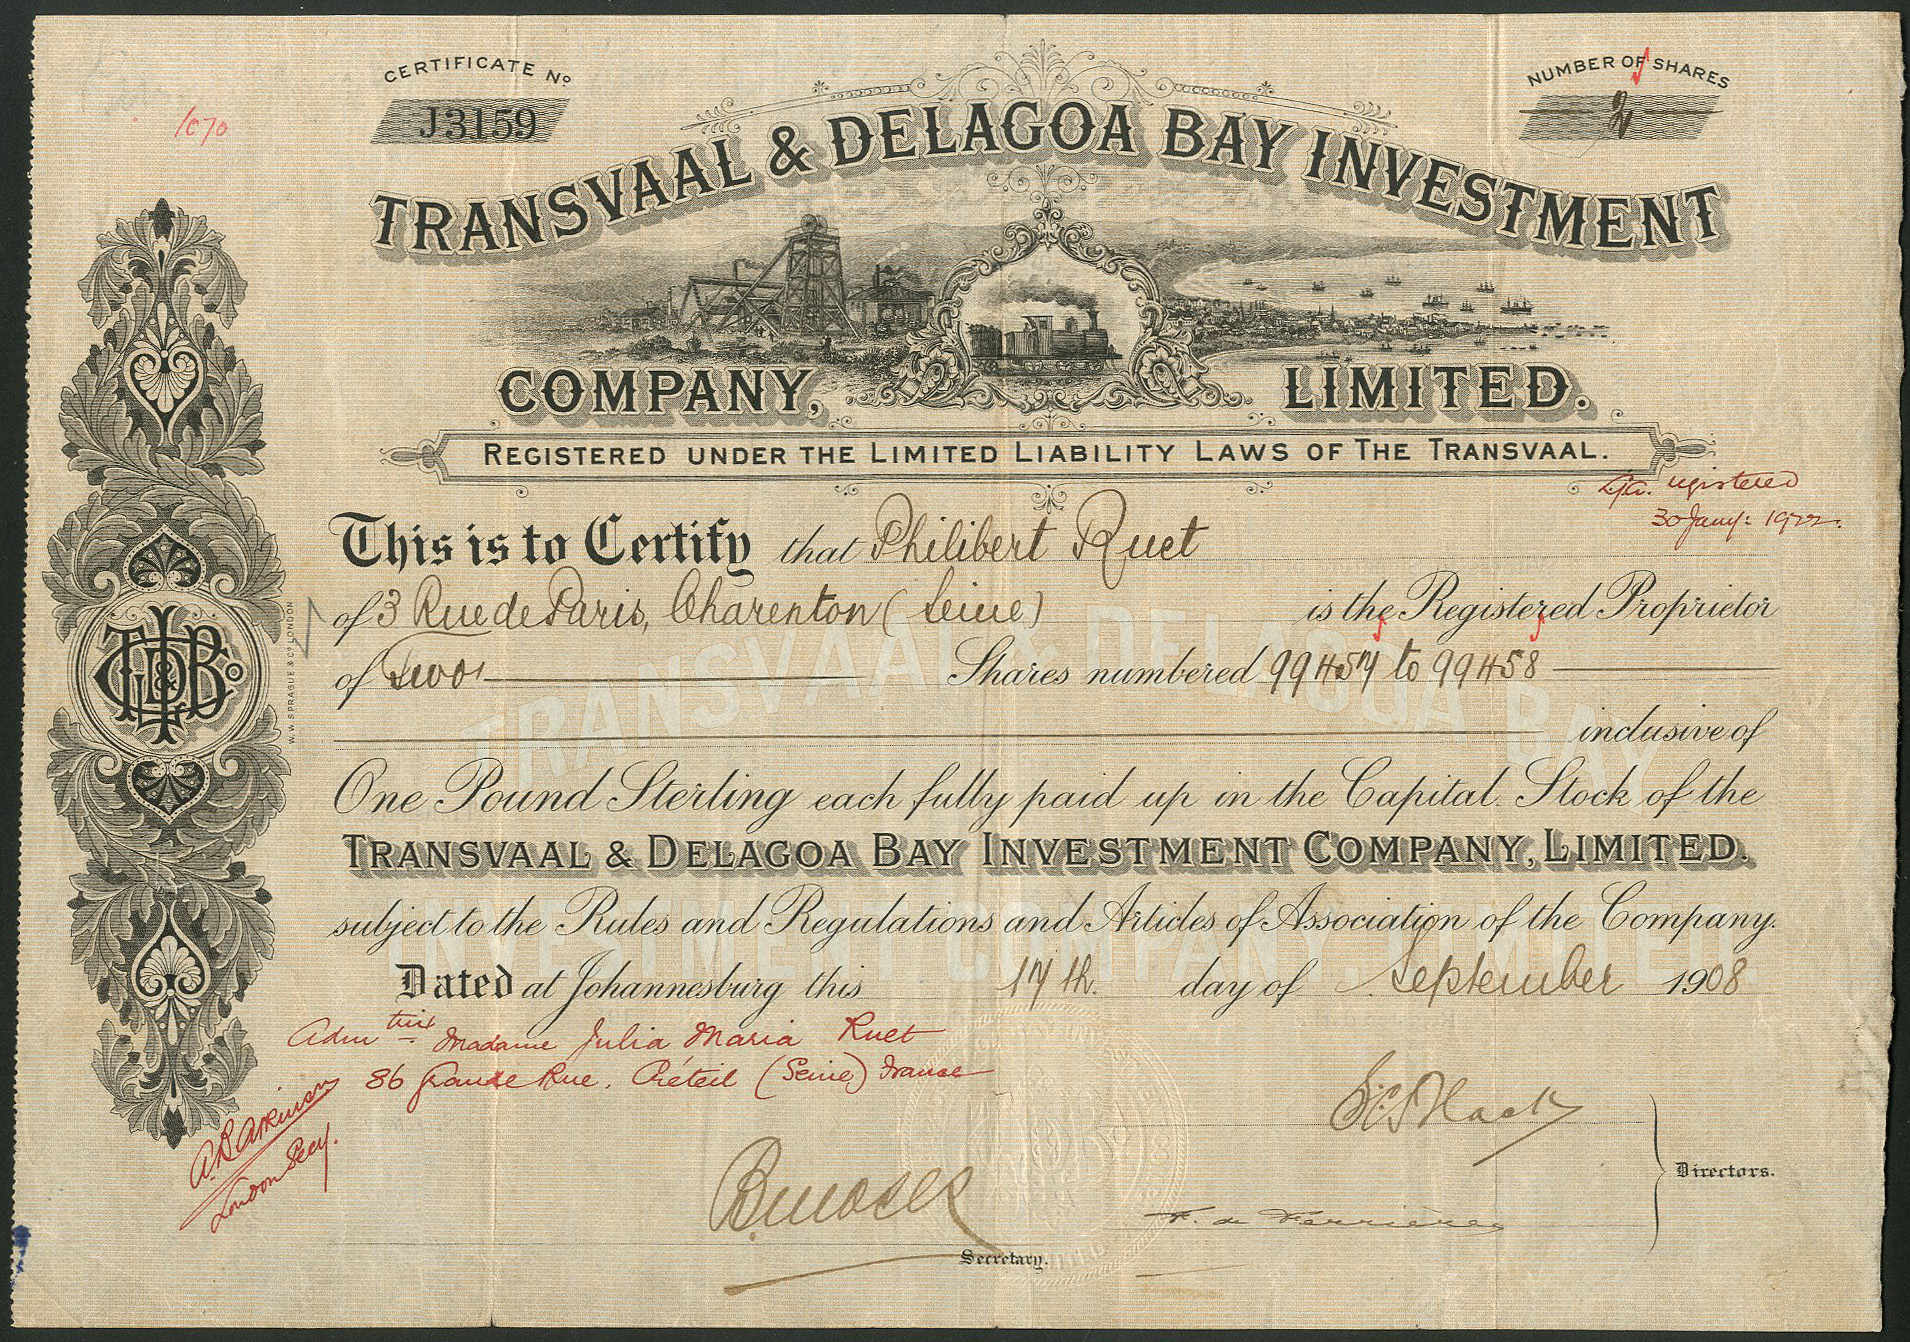 CERTIFICATE No
J3159
NUMBER OF SHARES
2
1070
TRANSVAAL & DELAGOA BAY INVESTMENT
COMPANY, LIMITED.
REGISTERED UNDER THE LIMITED LIABILITY LAWS OF THE TRANSVAAL.
registered
30 Jany: 1922.
This is to Certify that Philibert Ruet
of 3 Rue de Paris, Charenton (Seine) is the Registered Proprietor
of Two Shares numbered 99457 to 99458
inclusive of
One Pound Sterling each fully paid up in the Capital Stock of the
TRANSVAAL & DELAGOA BAY INVESTMENT COMPANY, LIMITED.
subject to the Rules and Regulations and Articles of Association of the Company.
Dated at Johannesburg this 17th. day of September 1908
Admtrix Madame Julia Maria Ruet
86 Grande Rue, Créteil (Seine) France
A. B. Atkinson
London Secy.
Directors.
F. de Ferrières
Secretary.
W. W. SPRAGUE & Co. LONDON
TRANSVAAL & DELAGOA BAY
INVESTMENT COMPANY LIMITED